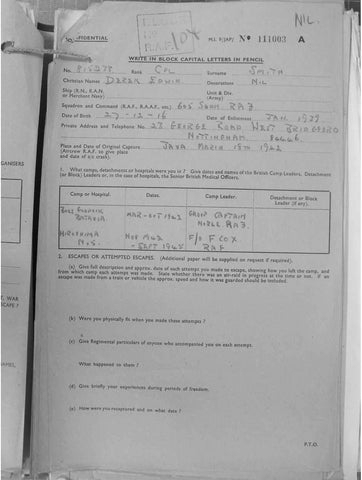 NIL.
CONFIDENTIAL
R.A.F.
M.I. 9/JAP/ Nº 111003 A
WRITE IN BLOCK CAPITAL LETTERS IN PENCIL
No. Rank CPL Surname SMITH
Christian Names DEREK EDWIN Decorations NIL
Ship (R.N., R.A.N. or Merchant Navy) Unit & Div. (Army)
Squadron and Command (R.A.F., R.A.A.F., etc.) 605 SQDN RAF
Date of Birth 27-12-16 Date of Enlistment JAN 1939
Private Address and Telephone No. 28 GEORGE ROAD WEST BRIDGFORD
NOTTINGHAM
Place and Date of Original Capture JAVA MARCH 18TH 1942
(Aircrew R.A.F. to give place and date of a/c crash).
1. What camps, detachments or hospitals were you in ? Give dates and names of the British Camp Leaders, Detachment (or Block) Leaders or, in the case of hospitals, the Senior British Medical Officers.
Camp or Hospital. Dates. Camp Leader. Detachment or Block Leader (if any).
BATAVIA. MAR-OCT 1942 GROUP CAPTAIN NOBLE RAF.
HIROSHIMA NOV 1942 - SEPT 1945 F/O F COX RAF
2. ESCAPES OR ATTEMPTED ESCAPES. (Additional paper will be supplied on request if required).
(a) Give full description and approx. date of each attempt you made to escape, showing how you left the camp, and from which camp each attempt was made. State whether there was an air-raid in progress at the time or not. If an escape was made from a train or vehicle the approx. speed and how it was guarded should be included.
(b) Were you physically fit when you made these attempts ?
(c) Give Regimental particulars of anyone who accompanied you on each attempt.
What happened to them ?
(d) Give briefly your experiences during periods of freedom.
(e) How were you recaptured and on what date ?
P.T.O.